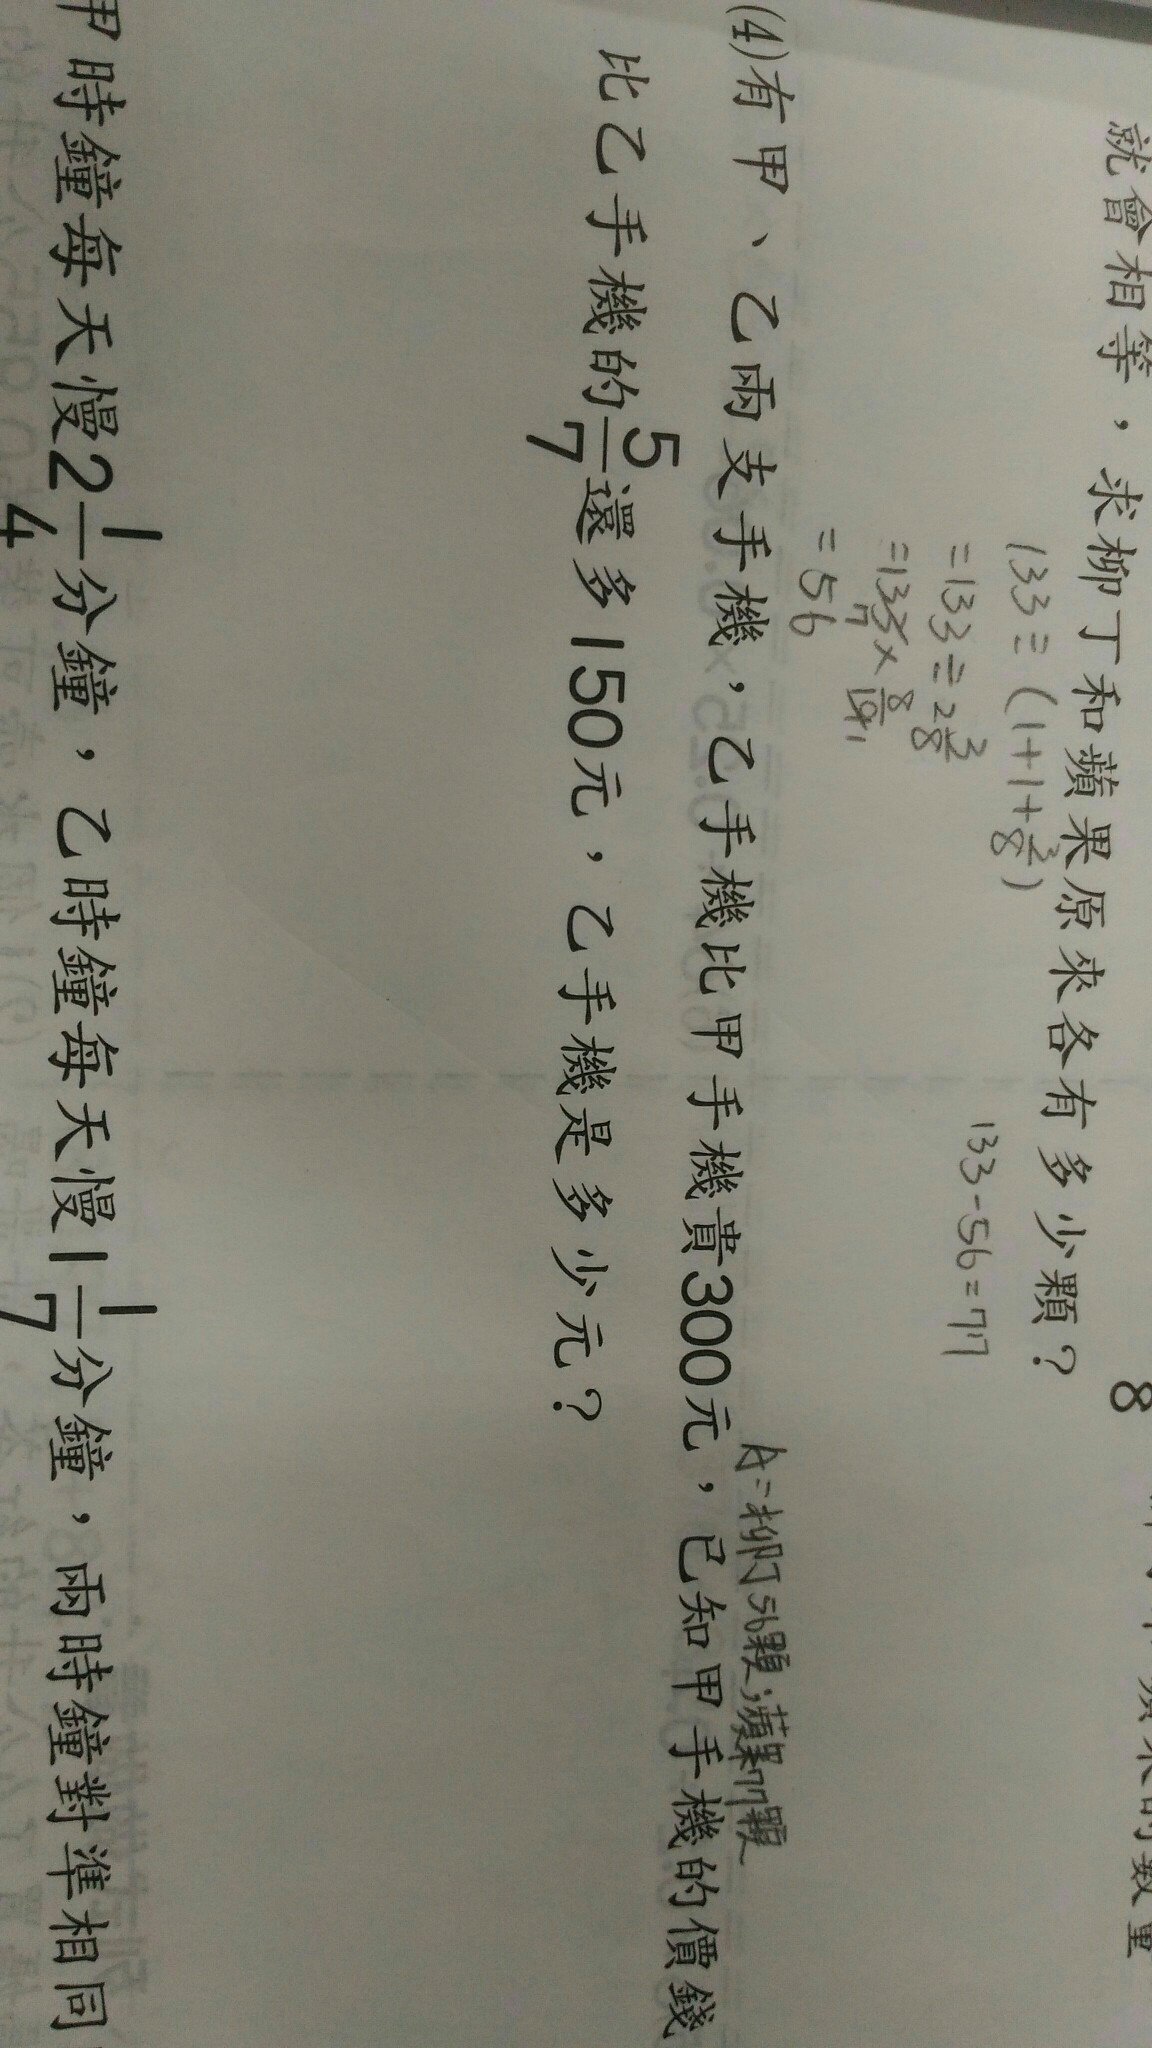 8
就會相等，求柳丁和蘋果原來各有多少顆？
133÷(1+1+3/8)
=133÷2 3/8
=133×8/19
=56
133-56=77
A=柳丁56顆;蘋果77顆
(4)有甲、乙兩支手機，乙手機比甲手機貴300元，已知甲手機的價錢
比乙手機的5/7還多150元，乙手機是多少元？
甲時鐘每天慢2 1/4分鐘，乙時鐘每天慢1 1/7分鐘，兩時鐘對準相同